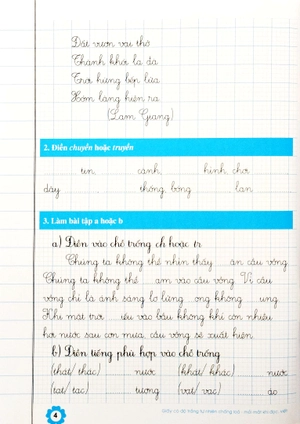 Đất vươn vai thở
Thành khói la đà
Trời hừng bếp lửa
Hôm lang hiện ra
(Lam Giang)
2. Điền chuyền hoặc truyền
tin cành hình chơi
dây thống bóng lan
3. Làm bài tập a hoặc b
a) Điền vào chỗ trống ch hoặc tr
Chúng ta không thể nhìn thấy ân cầu vồng
Chúng ta không thể ạm vào cầu vồng Vì cầu
vồng chỉ là ánh sáng lơ lửng ong không ung
Khi mặt trời iếu vào bầu không khí còn nhiều
hơi nước sau cơn mưa, cầu vồng sẽ xuất hiện.
b) Điền tiếng phù hợp vào chỗ trống
(thát/ thác) nước (khát/ khác) nước
(tạt/ tạc) tượng (vạt/ vạc) áo
4